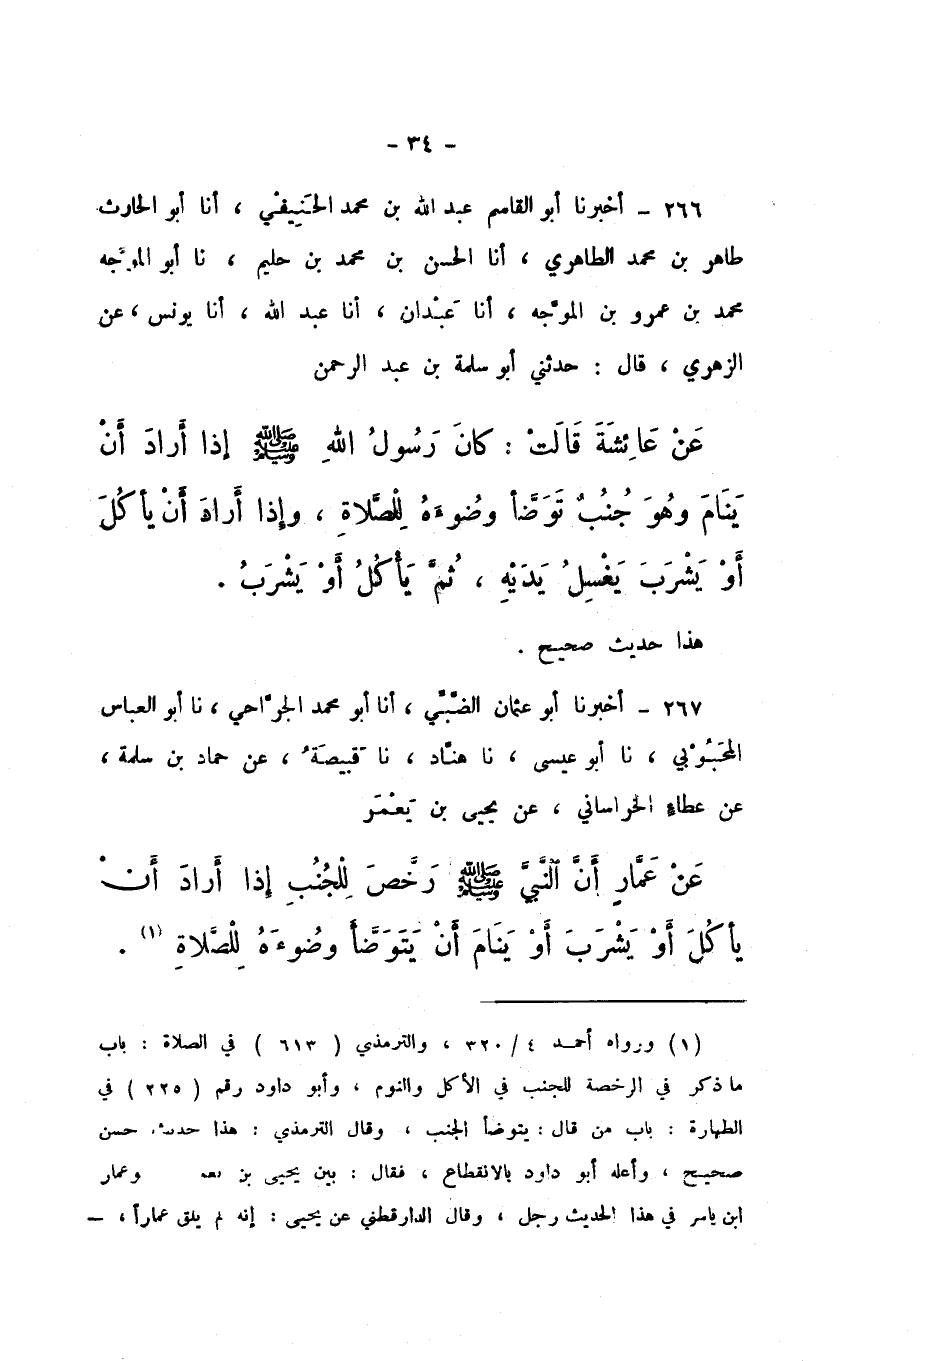 - ٣٤ -
٢٦٦ - أخبرنا أبو القاسم عبد الله بن محمد الحَنِيفْي ، أنا أبو الحارث
طاهر بن محمد الطاهري ، أنا الحسن بن محمد بن حليم ، نا أبو الموجّه
محمد بن عمرو بن الموجّه ، أنا عَبْدان ، أنا عبد الله ، أنا يونس ، عن
الزهري ، قال : حدثني أبو سلمة بن عبد الرحمن
عَنْ عَائِشَةَ قَالَتْ : كانَ رَسُولُ اللهِ ﷺ إذا أَرادَ أَنْ
يَنَامَ وهُوَ جُنُبٌ تَوَضَّأ وضُوءَهُ لِلْصَّلاةِ ، وإذا أَرادَ أَنْ يأكُلَ
أَوْ يَشْرَبَ يَغْسِلُ يَدَيْهِ ، ثُمَّ يَأْكُلُ أَوْ يَشْرَبُ .
هذا حديث صحيح .
٢٦٧ - أخبرنا أبو عثمان الضّبّي ، أنا أبو محمد الجرّاحي ، نا أبو العباس
المَحَبُوْبي ، نا أبو عيسى ، نا هنّاد ، نا قَبيصَةُ ، عن حماد بن سلمة ،
عن عطاءٍ الخراساني ، عن يحيى بن يَعْمَر
عَنْ عَمَّارٍ أَنَّ النَّبيَّ ﷺ رَخَّصَ لِلْجُنُبِ إذا أَرادَ أَنْ
يأكُلَ أَوْ يَشْرَبَ أَوْ يَنَامَ أَنْ يَتَوَضَّأَ وضُوءَهُ لِلْصَّلاةِ (١) .
(١) ورواه أحمد ٤ / ٣٢٠ ، والترمذي ( ٦١٣ ) في الصلاة : باب
ما ذكر في الرخصة للجنب في الأكل والنوم ، وأبو داود رقم ( ٢٢٥ ) في
الطهارة : باب من قال : يتوضأ الجنب ، وقال الترمذي : هذا حديث حسن
صحيح ، وأعله أبو داود بالانقطاع ، فقال : بين يحيى بن وعمار
ابن ياسر في هذا الحديث رجل ، وقال الدارقطني عن يحيى : إنه لم يلق عماراً ، -